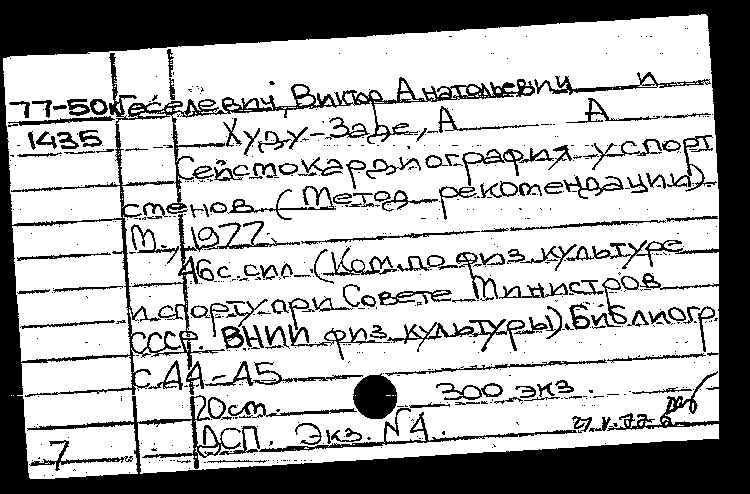 77-50к Геселевич, Виктор Анатольевич и
1435 Худу-Заде, А А
Сейсмокардиография у спорт
сменов (Метод. рекомендации).
М., 1977.
46с. с ил (Ком. по физ. культуре
и спорту при Совете Министров
СССР. ВНИИ физ. культуры). Библиогр
с. 44-45
20см. 300 экз.
7 ДСП. Экз. N4.